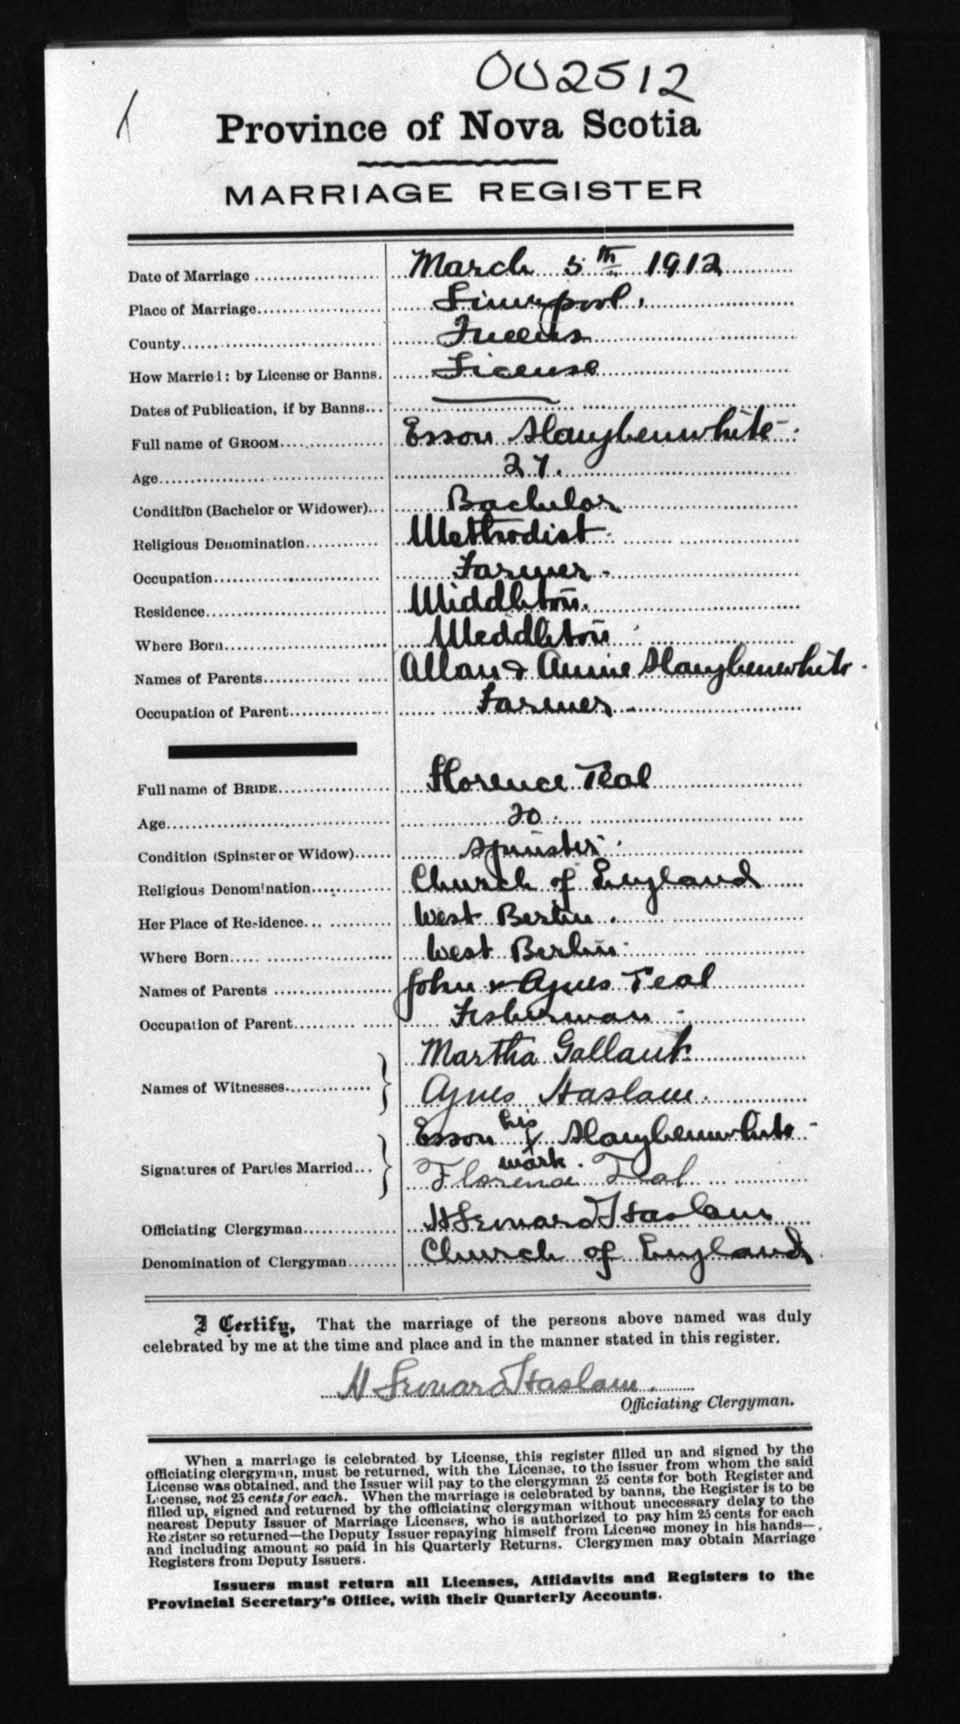 002512
Province of Nova Scotia
MARRIAGE REGISTER
Date of Marriage March 5th 1912
Place of Marriage Liverpool.
County Queens
How Married: by License or Banns. License
Dates of Publication, if by Banns
Full name of GROOM Esson Slaughenwhite
Age 27.
Condition (Bachelor or Widower) Bachelor
Religious Denomination Methodist
Occupation Farmer
Residence Middleton.
Where Born Middleton
Names of Parents Allan & Annie Slaughenwhite
Occupation of Parent Farmer
Full name of BRIDE Florence Teal
Age 20
Condition (Spinster or Widow) Spinster
Religious Denomination Church of England
Her Place of Residence West Berlin.
Where Born West Berlin
Names of Parents John & Agnes Teal
Occupation of Parent Fisherman
Names of Witnesses Martha Gallant
Agnes Haslam.
Signatures of Parties Married Esson his x mark. Slaughenwhite
Florence Teal
Officiating Clergyman H Leonard Haslam
Denomination of Clergyman Church of England
I Certify, That the marriage of the persons above named was duly
celebrated by me at the time and place and in the manner stated in this register.
H Leonard Haslam.
Officiating Clergyman.
When a marriage is celebrated by License, this register filled up and signed by the
officiating clergyman, must be returned, with the License, to the issuer from whom the said
License was obtained, and the Issuer will pay to the clergyman 25 cents for both Register and
License, not 25 cents for each. When the marriage is celebrated by banns, the Register is to be
filled up, signed and returned by the officiating clergyman without unnecessary delay to the
nearest Deputy Issuer of Marriage Licenses, who is authorized to pay him 25 cents for each
Register so returned—the Deputy Issuer repaying himself from License money in his hands—
and including amount so paid in his Quarterly Returns. Clergymen may obtain Marriage
Registers from Deputy Issuers.
Issuers must return all Licenses, Affidavits and Registers to the
Provincial Secretary's Office, with their Quarterly Accounts.